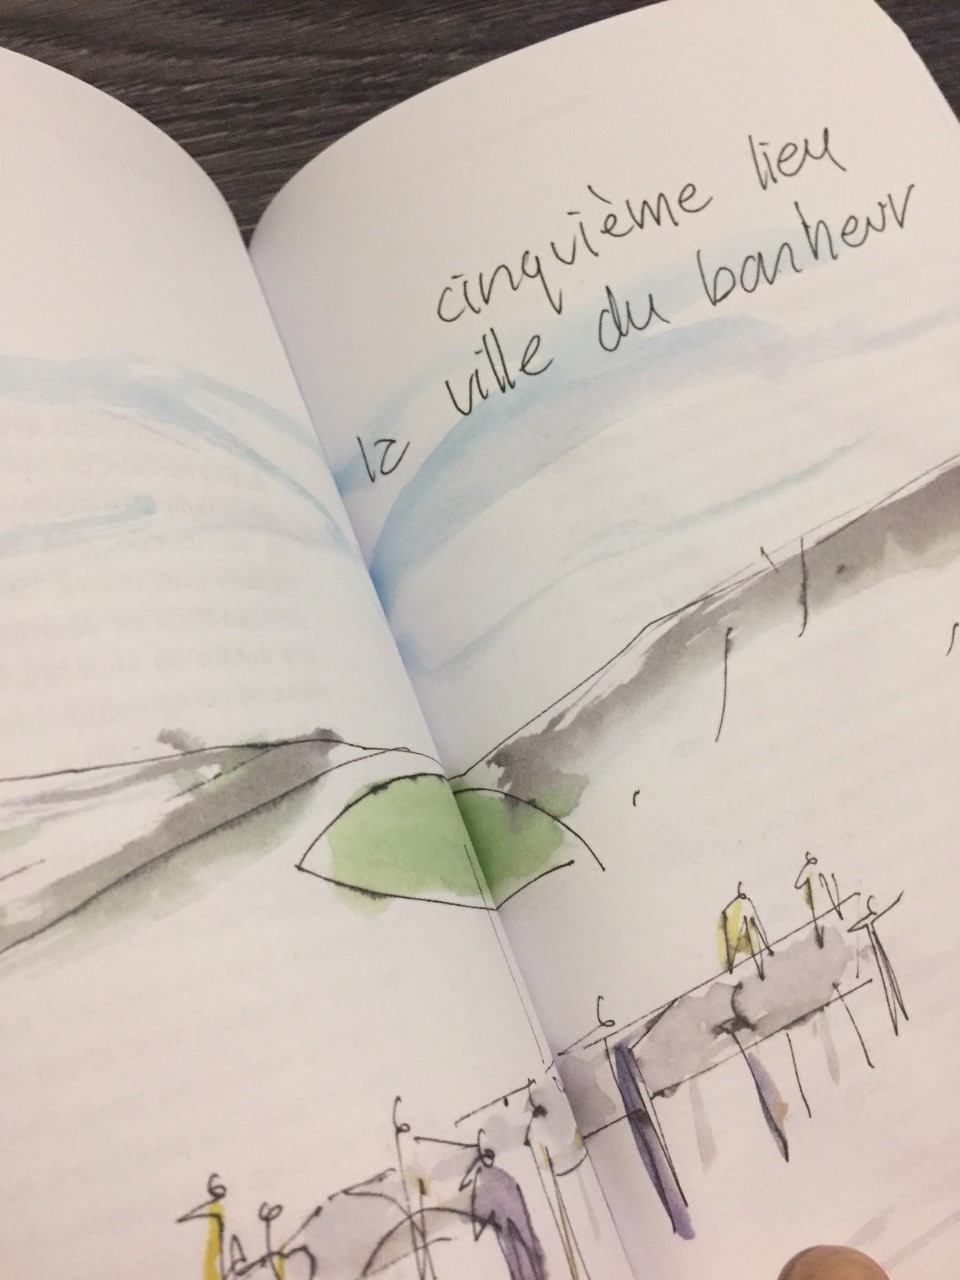 cinquième lieu
la ville du bonheur